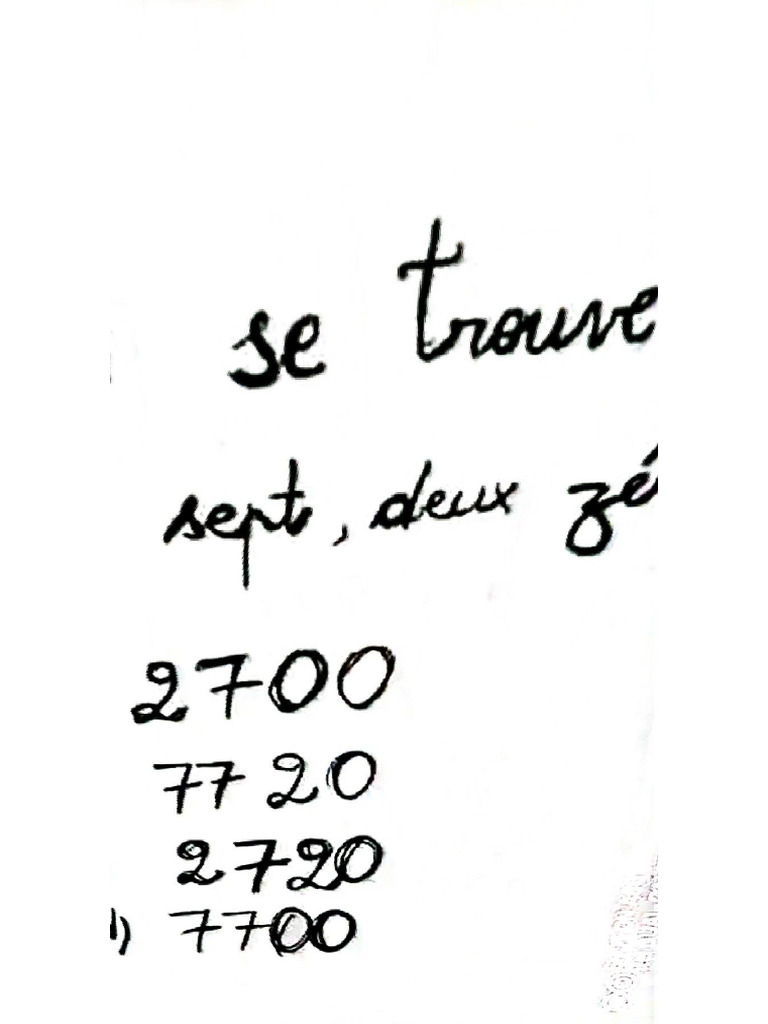 se trouve
sept, deux zé
2700
7720
2720
1) 7700